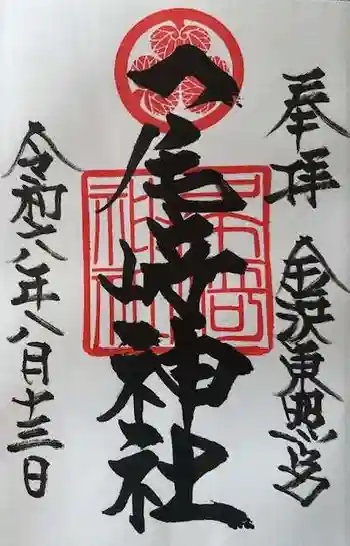 奉拝 金沢東照宮
尾崎神社
令和六年八月十三日
尾崎
神社